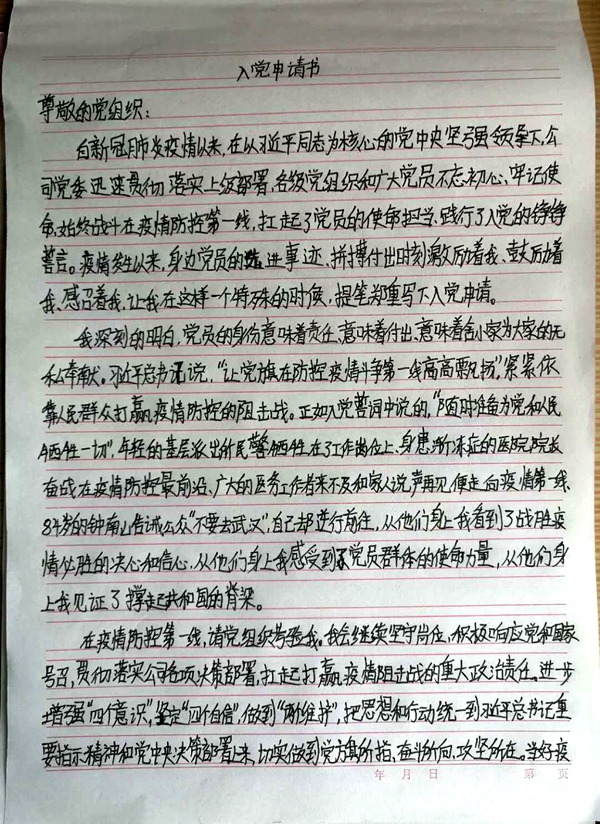 入党申请书
尊敬的党组织：
自新冠肺炎疫情以来，在以习近平同志为核心的党中央坚强领导下，公
司党委迅速贯彻落实上级部署，各级党组织和广大党员不忘初心、牢记使
命，始终战斗在疫情防控第一线，扛起了党员的使命担当、践行了入党的铮铮
誓言。疫情发生以来，身边党员的先进事迹、拼搏付出时刻激励着我、鼓励着
我、感召着我，让我在这样一个特殊的时候，提笔郑重写下入党申请。
我深刻的明白，党员的身份意味着责任、意味着付出、意味着舍小家为大家的无
私奉献。习近平总书记说，“让党旗在防控疫情斗争第一线高高飘扬”，紧紧依
靠人民群众打赢疫情防控的阻击战。正如入党誓词中说的，“随时准备为党和人民
牺牲一切”，年轻的基层派出所民警牺牲在了工作岗位上、身患渐冻症的医院院长
奋战在疫情防控最前沿、广大的医务工作者来不及和家人说声再见便走向疫情第一线、
84岁的钟南山告诫公众“不要去武汉”，自己却逆行前往，从他们身上我看到了战胜疫
情必胜的决心和信心，从他们身上我感受到了党员群体的使命力量，从他们身
上我见证了撑起共和国的脊梁。
在疫情防控第一线，请党组织考验我。我会继续坚守岗位，积极响应党和国家
号召，贯彻落实公司各项决策部署，扛起打赢疫情阻击战的重大政治责任。进一步
增强“四个意识”，坚定“四个自信”，做到“两个维护”，把思想和行动统一到习近平总书记重
要指示精神和党中央决策部署上来，切实做到党旗所指、奋斗所向、攻坚所在。当好疫
年 月 日 第 页